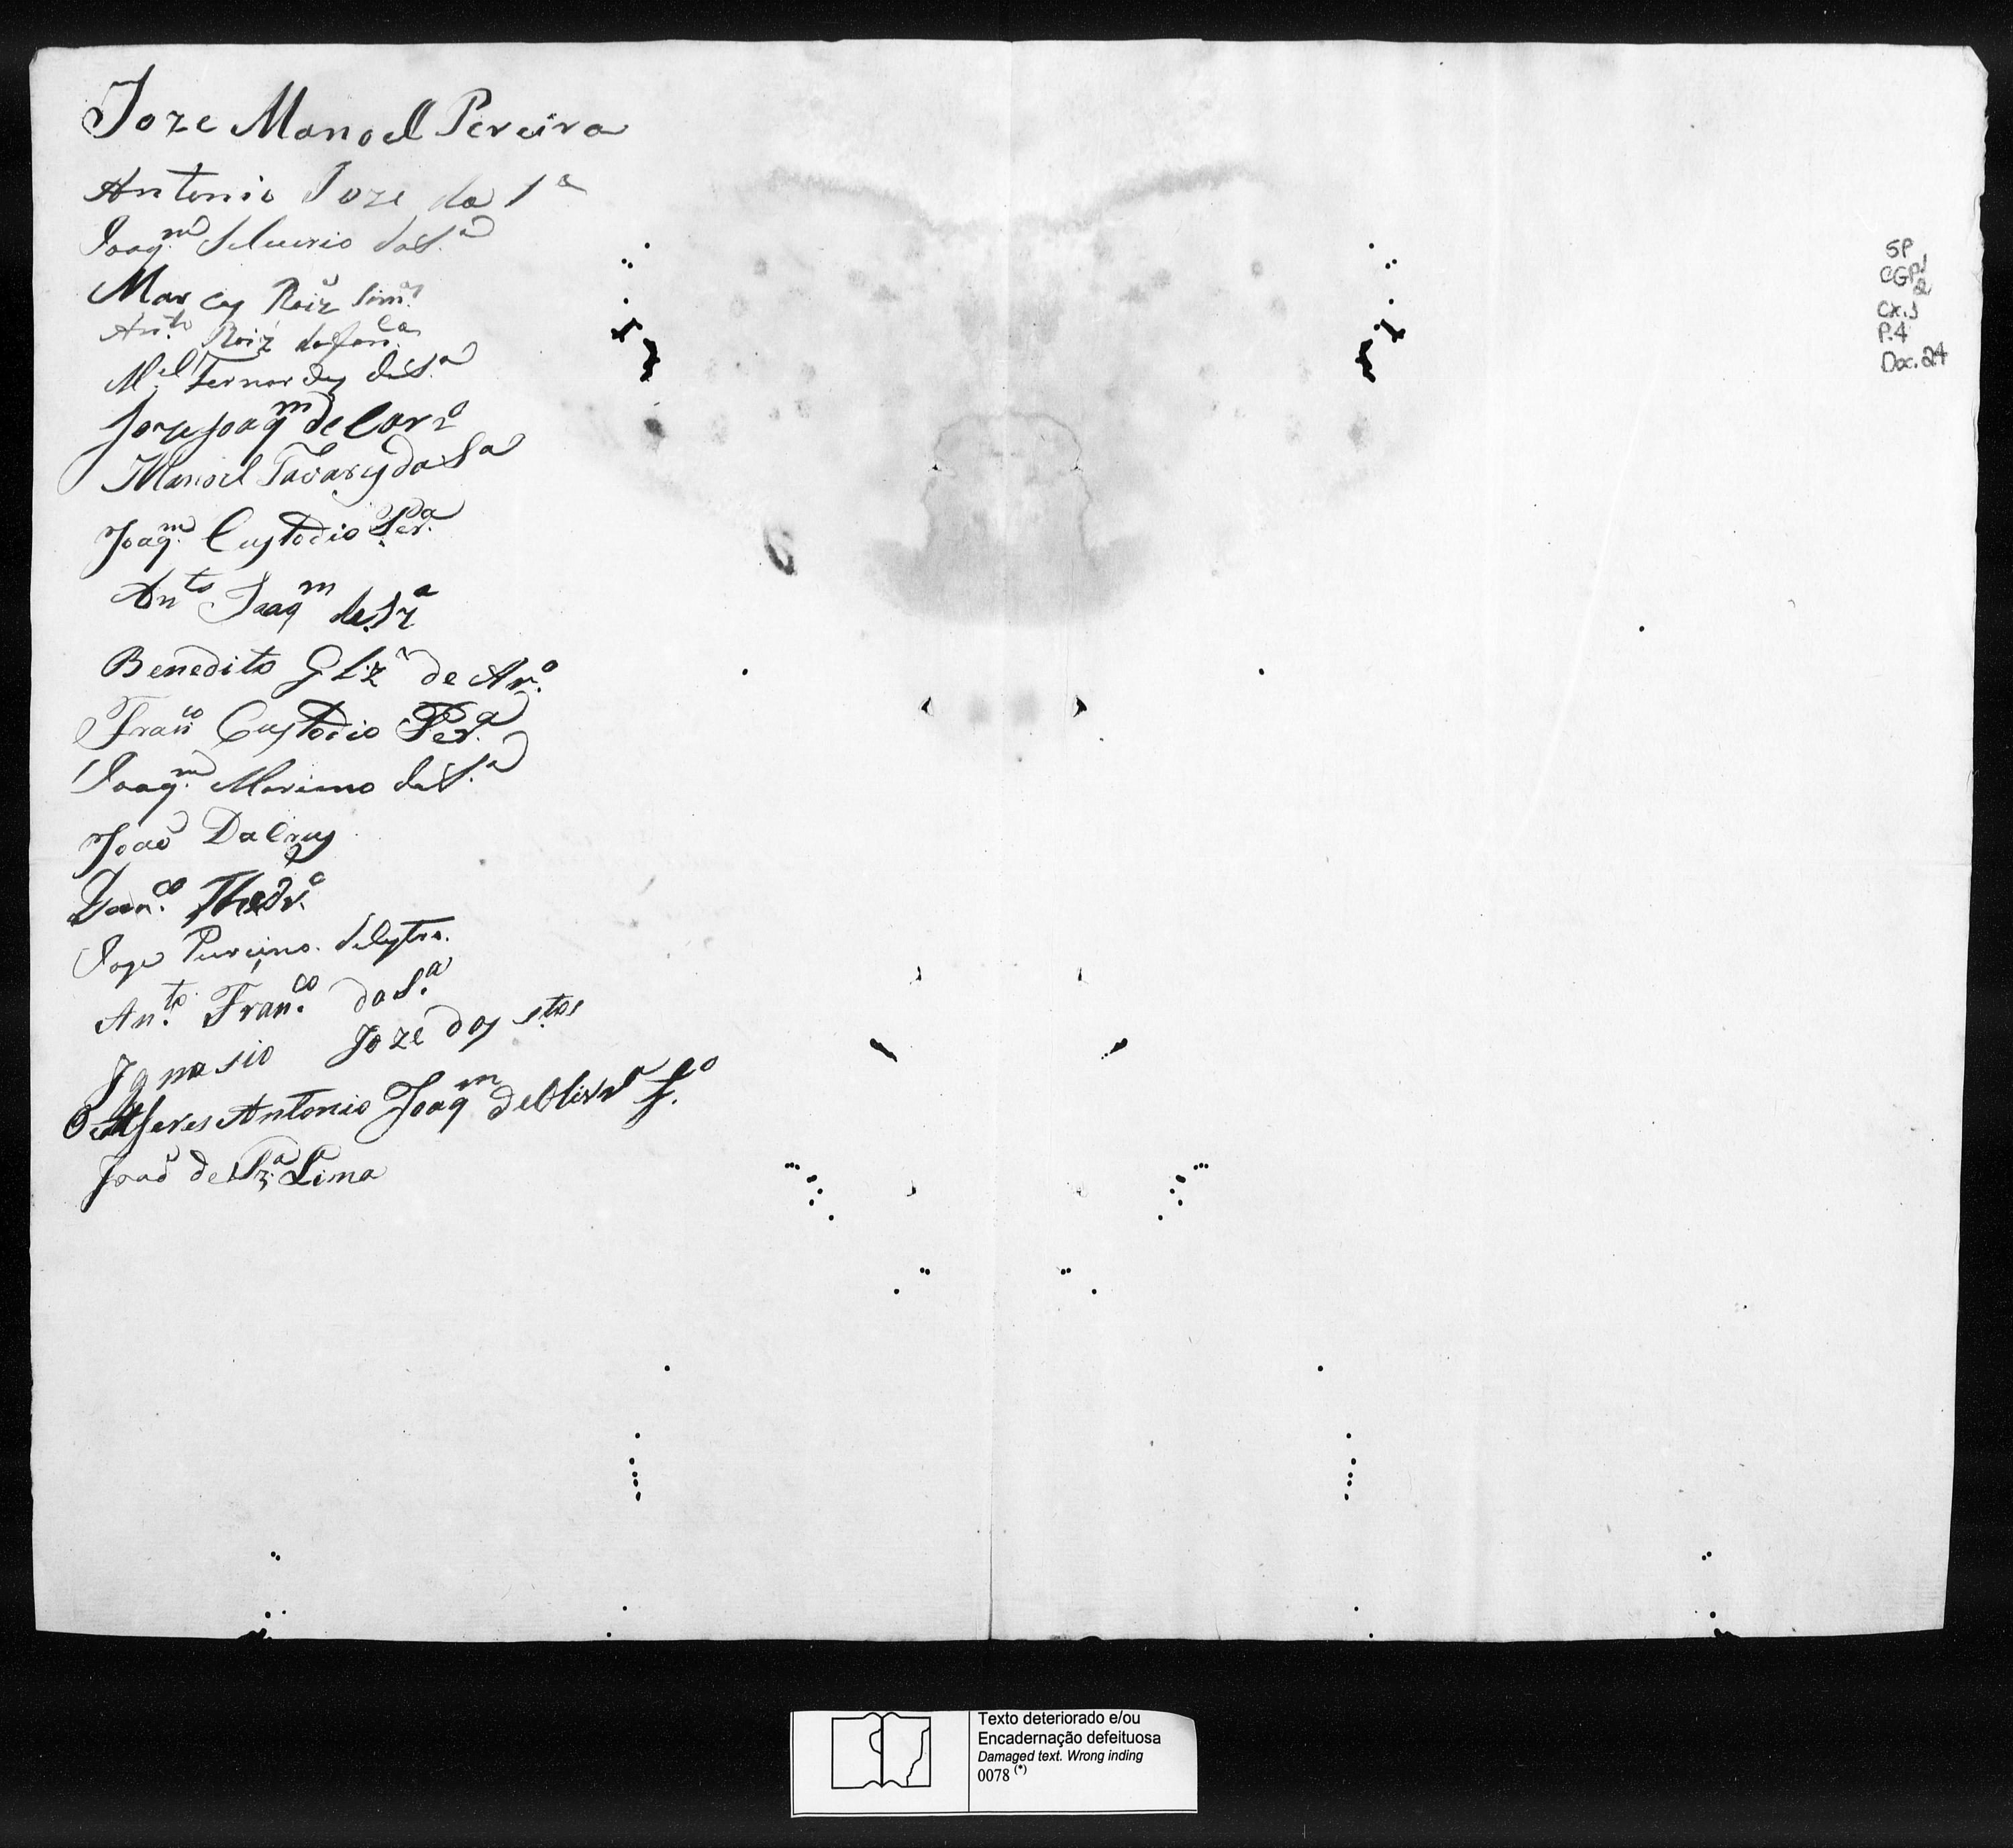 Joze Manoel Pereira
Antonio Joze da S.ª
Joaq.m Silverio da S.ª
Marcos Roiz
An.to Roiz
M.el Fernandes da S.ª
Joze Joaq.m de
Manoel Tavares da S.ª
Joaq.m Custodio Per.ª
An.to Joaq.m de Sz.ª
Benedito Glz de Ar.º
Fran.co Custodio Per.ª
Joaq.m da S.ª
João Da Crus
Fran.co
Joze
An.to Fran.co da S.ª
Ignasio Joze dos S.tos
O Alferes Antonio Joaq.m de Olivr.ª
João de Sz.ª Lima
SP
CGP/
2
Cx. 3
P. 4
Doc. 24
Texto deteriorado e/ou
Encadernação defeituosa
Damaged text. Wrong inding
0078 (*)